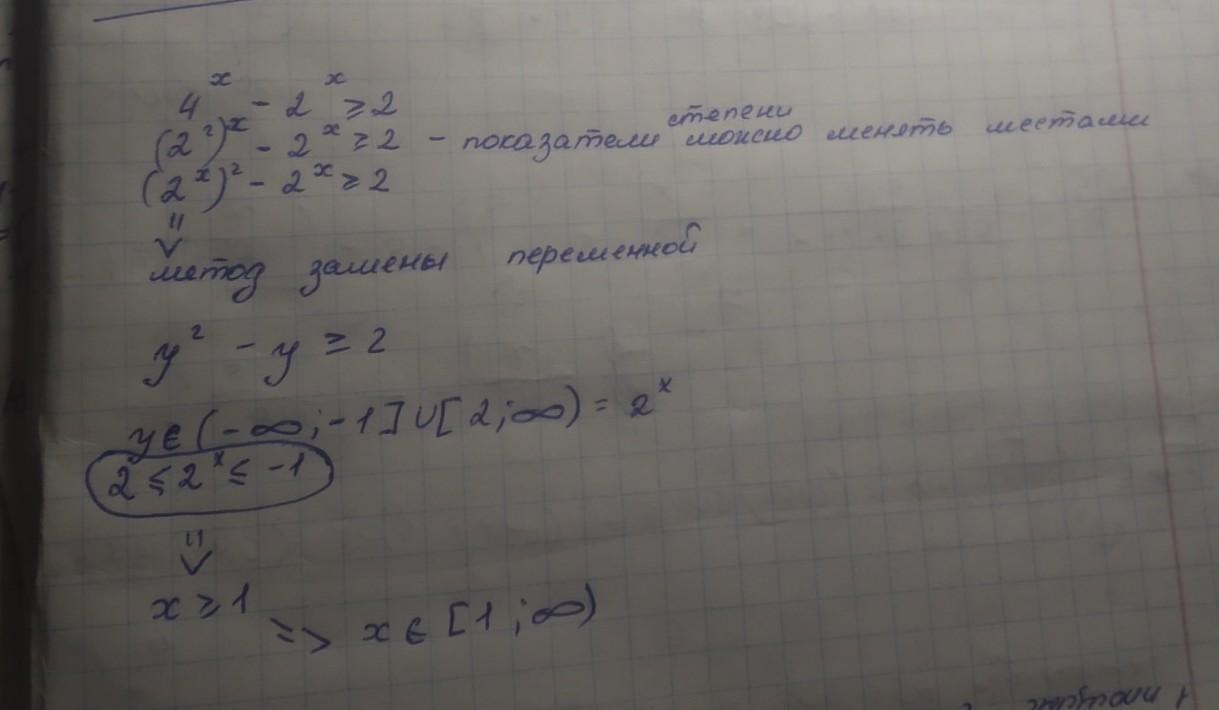 4ˣ - 2ˣ ≥ 2
(2²)ˣ - 2ˣ ≥ 2 - показатели степени можно менять местами
(2ˣ)² - 2ˣ ≥ 2
метод замены переменной
y² - y ≥ 2
y ∈ (-∞; -1] ∪ [2; ∞) = 2ˣ
2 ≤ 2ˣ ≤ -1
x ≥ 1
=> x ∈ [1; ∞)